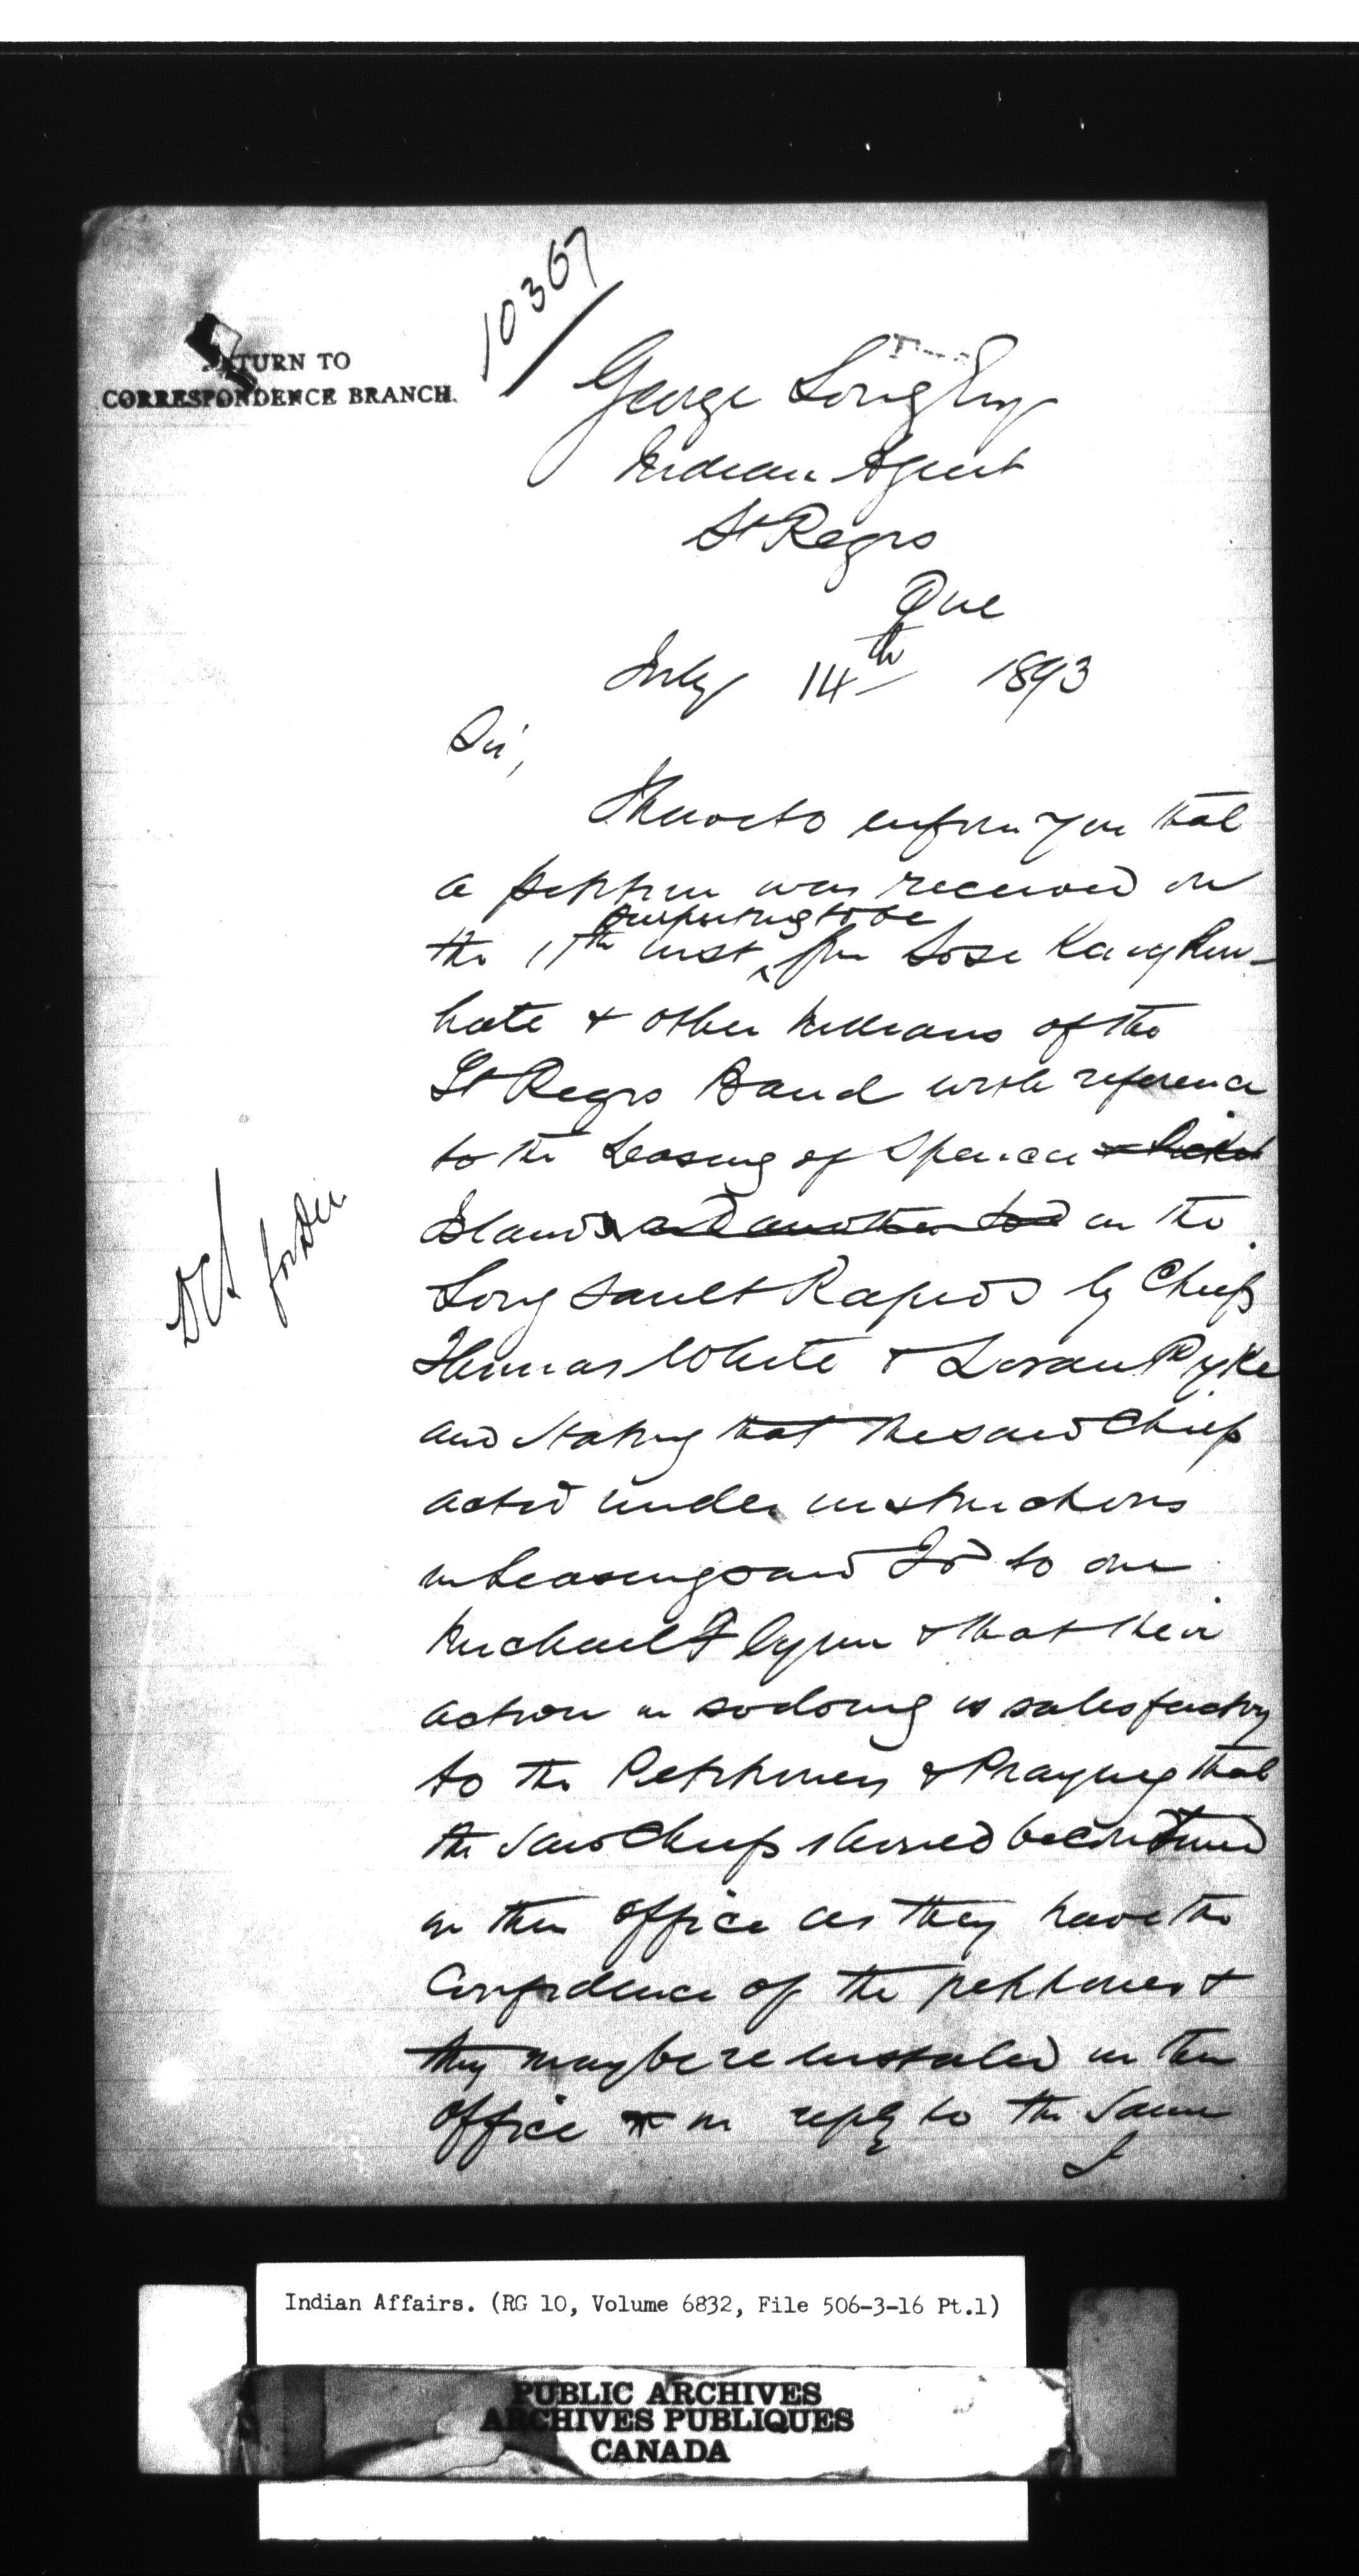 10367
RETURN TO
CORRESPONDENCE BRANCH.
George Long Esq
Indian Agent
St Regis
Que
July 14th 1893
Sir,
I have to inform you that
a petition was received on
purporting to be
the 11th inst from Sose
hate & other Indians of the
St Regis Band with reference
to the Leasing of Spencer
Island and another Isd in the
Long Sault Rapids by Chiefs
Thomas White & Loran Pyke
and stating that the said Chiefs
acted under instructions
in leasing said Isd to one
Michael Flynn & that their
action in so doing is satisfactory
to the Petitioners & Praying that
the said Chiefs should be continued
in their office as they have the
Confidence of the petitioners &
they may be reinstated in their
office in reply to the same
I
DCS
for Dep
Indian Affairs. (RG 10, Volume 6832, File 506-3-16 Pt.1)
PUBLIC ARCHIVES
ARCHIVES PUBLIQUES
CANADA